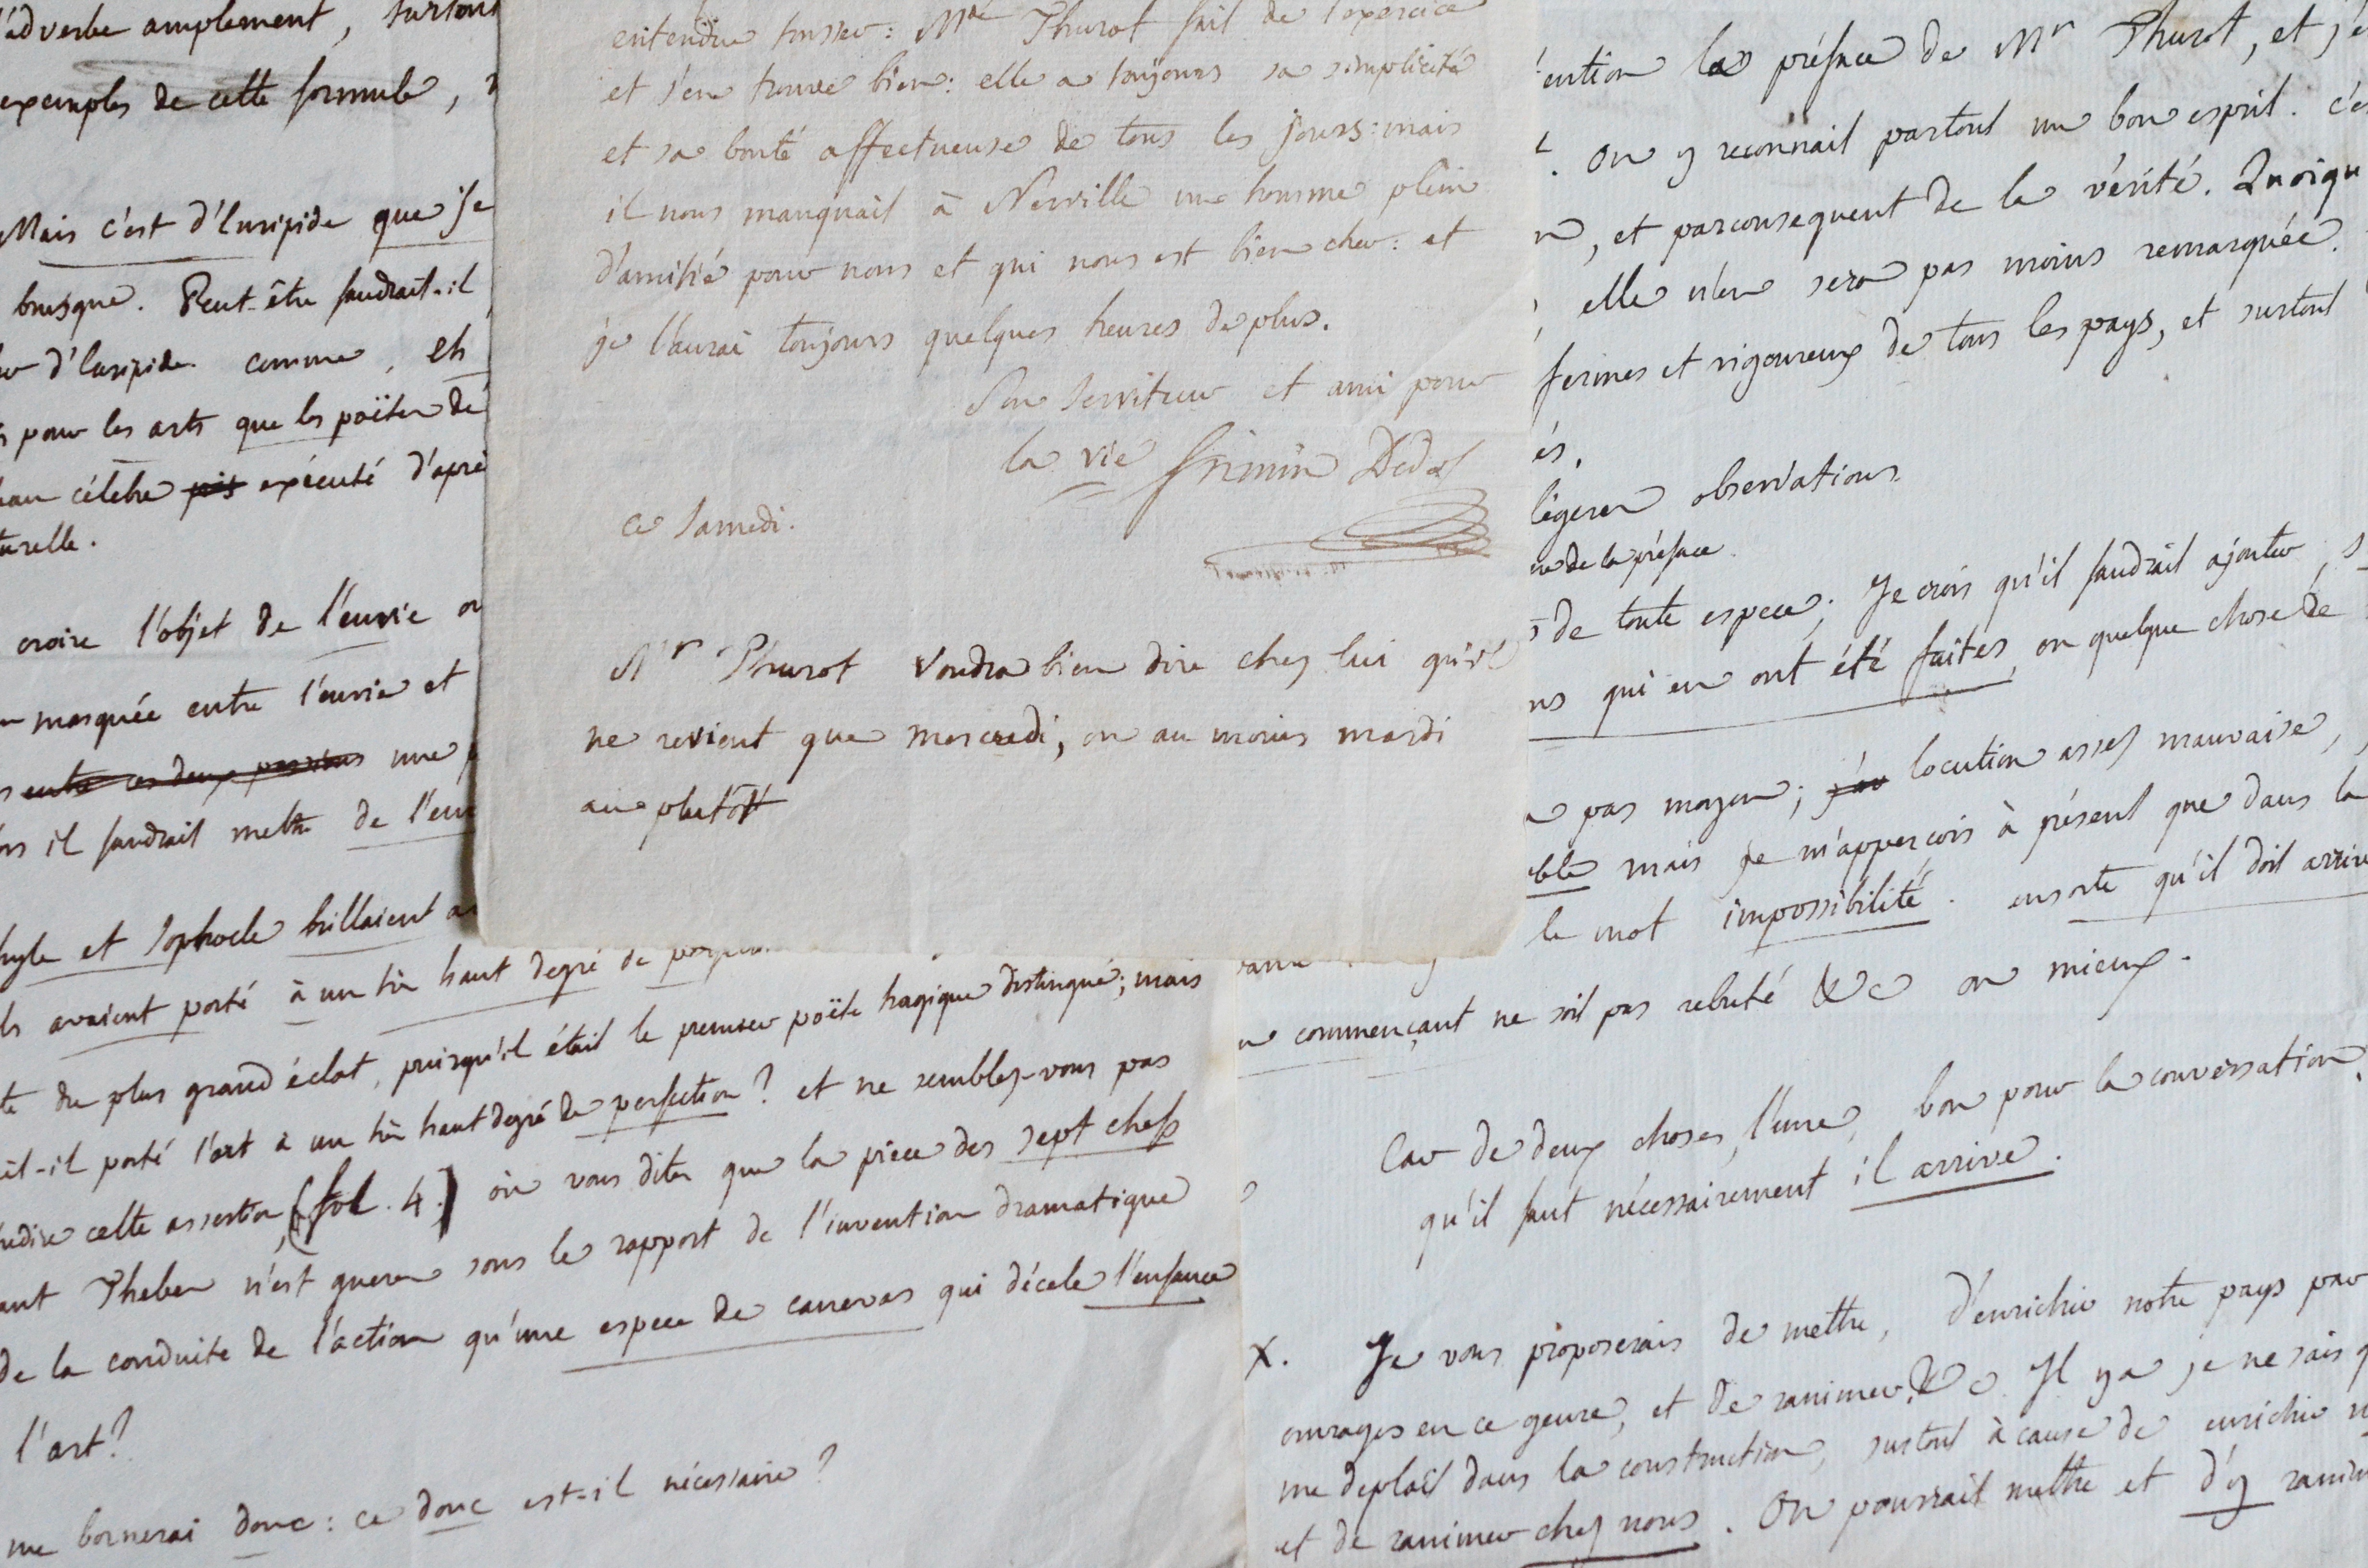 l'adverbe amplement, surtout
exemples de cette formule,
Mais c'est d'Euripide que je
brusque. Peut-être faudrait-il
d'Euripide comme, eh
pour les arts que les poëtes dé
célebre pris exécuté d'aprè
turelle.
croire l'objet de l'envie ou
marquée entre l'envie et
entre ces deux passions une
il faudrait mettre de l'env
hyle et Sophocle brillaient a
ls avaient porté à un très haut degré de
te du plus grand éclat, puisqu'il était le premier poëte tragique distingué; mais
it-il porté l'art à un très haut degré de perfection? et ne semblez-vous pas
redire cette assertion, (fol. 4.) où vous dites que la piece des sept chefs
ant Thebes n'est gueres sous le rapport de l'invention dramatique
de la conduite de l'action qu'une espece de canevas qui décele l'enfance
l'art?
me bornerai donc: ce donc est-il nécessaire?
entendue tousser: Mde Thurot fait de l'exercice
et s'en trouve bien: elle a toujours sa simplicité
et sa bonté affectueuse de tous les jours: mais
il nous manquait à Nerville un homme plein
d'amitié pour nous et qui nous est bien cher: et
je l'aurai toujours quelques heures de plus.
Son serviteur et ami pour
la vie Firmin Didot
ce samedi.
Mr Thurot voudra bien dire chez lui qu'il
ne revient que mercredi, ou au moins mardi
au plutôt
ention la préface de Mr Thurot, et j'é
. On y reconnait partout un bon esprit. c'es
, et parconsequent de la vérité. Quoiqu
, elle n'en sera pas moins remarquée.
fermes et rigoureux de tous les pays, et surtout
és.
légeres observations.
de la préface.
de toute espece; Je crois qu'il faudrait ajouter, s
ns qui en ont été faites, ou quelque chose de
pas moyen; j'av locution assez mauvaise,
ble mais je m'apperçois à présent que dans la
le mot impossibilité. ensorte qu'il doit arrive
commençant ne soit pas rebuté &c ou mieux.
Car de deux choses, l'une, bon pour la conversation,
qu'il faut nécessairement il arrive.
X. Je vous proposerais de mettre, d'enrichir notre pays par
ouvrages en ce genre, et de ranimer &c. Il y a je ne sais q
me deplaît dans la construction, surtout à cause de enrichir n
et de ranimer chez nous. On pourrait mettre et d'y ranim